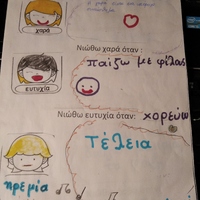 χαρά
Νιώθω χαρά όταν :
παίζω με φίλους
ευτυχία
Νιώθω ευτυχία όταν :
χορεύω
Τέλεια
ηρεμία